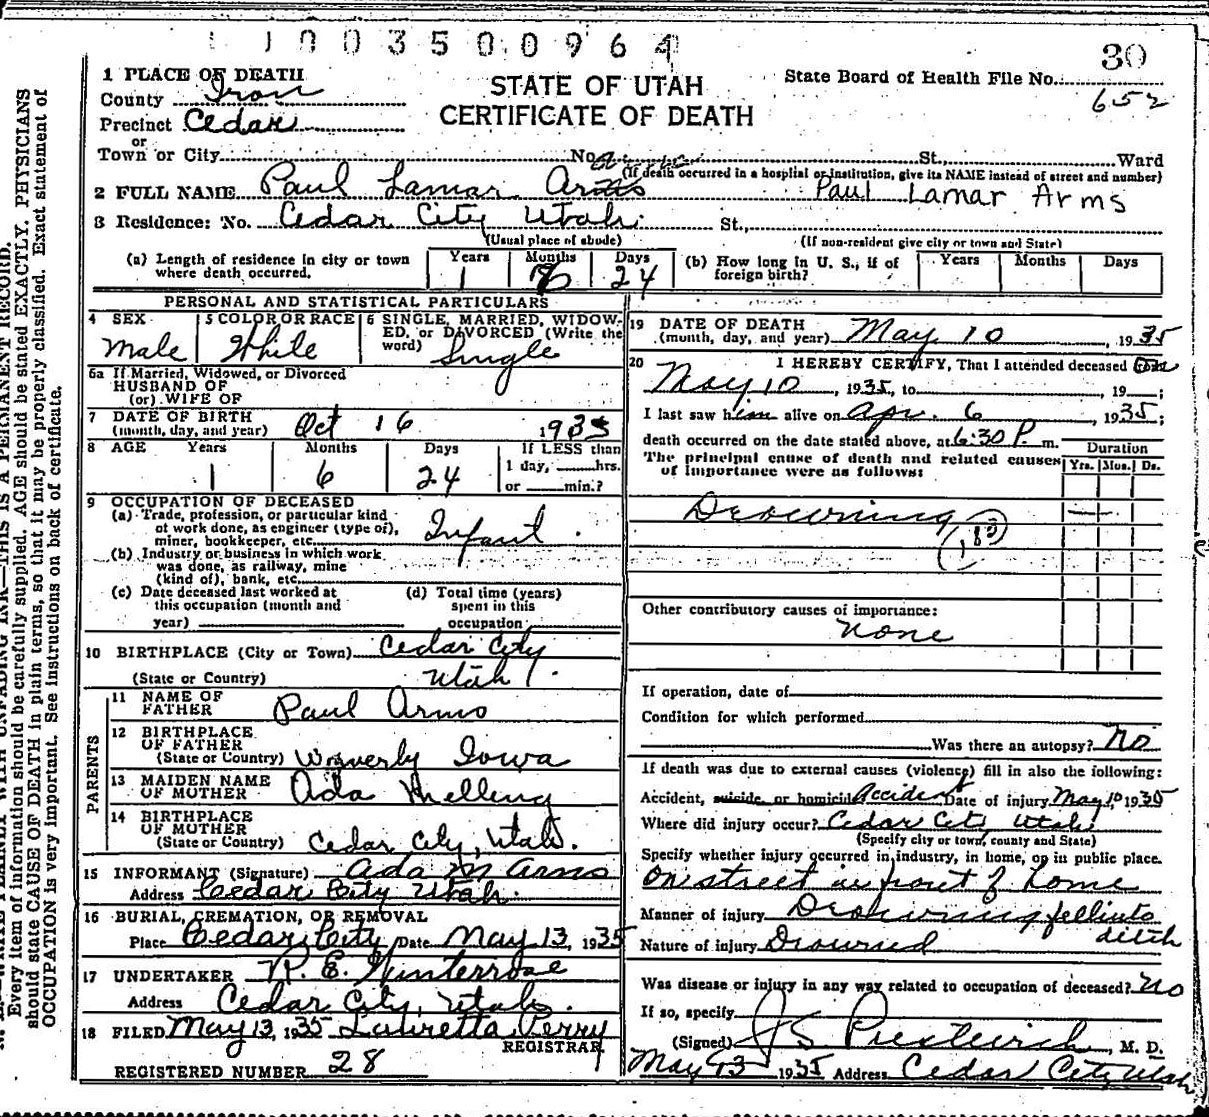 1 0 0 3 5 0 0 9 6 4
30
1 PLACE OF DEATH
County Iron
Precinct Cedar
or
Town or City No. St., Ward
STATE OF UTAH
CERTIFICATE OF DEATH
State Board of Health File No.
652
(If death occurred in a hospital or institution, give its NAME instead of street and number)
2 FULL NAME Paul Lamar Arms Paul Lamar Arms
3 Residence: No. Cedar City Utah St.,
(Usual place of abode) (If non-resident give city or town and State)
(a) Length of residence in city or town where death occurred. Years 1 Months 6 Days 24
(b) How long in U. S., if of foreign birth? Years Months Days
PERSONAL AND STATISTICAL PARTICULARS
4 SEX Male
5 COLOR OR RACE White
6 SINGLE, MARRIED, WIDOWED, or DIVORCED (Write the word) Single
6a If Married, Widowed, or Divorced
HUSBAND OF
(or) WIFE OF
7 DATE OF BIRTH
(month, day, and year) Oct 16 1933
8 AGE Years 1 Months 6 Days 24
If LESS than
1 day, hrs.
or min.?
9 OCCUPATION OF DECEASED
(a) Trade, profession, or particular kind
of work done, as engineer (type of),
miner, bookkeeper, etc. Infant
(b) Industry or business in which work
was done, as railway, mine
(kind of), bank, etc.
(c) Date deceased last worked at
this occupation (month and
year)
(d) Total time (years)
spent in this
occupation
10 BIRTHPLACE (City or Town) Cedar City
(State or Country) Utah
PARENTS
11 NAME OF
FATHER Paul Arms
12 BIRTHPLACE
OF FATHER
(State or Country) Waverly Iowa
13 MAIDEN NAME
OF MOTHER Ada Melling
14 BIRTHPLACE
OF MOTHER
(State or Country) Cedar City, Utah.
15 INFORMANT (Signature) Ada M Arms
Address Cedar City Utah.
16 BURIAL, CREMATION, OR REMOVAL
Place Cedar City Date May 13, 1935
17 UNDERTAKER
Address Cedar City, Utah.
18 FILED May 13, 1935 Lauretta Perry
REGISTRAR
REGISTERED NUMBER 28
19 DATE OF DEATH
(month, day, and year) May 10, 1935
20 I HEREBY CERTIFY, That I attended deceased from
May 10, 1935, to , 19 ;
I last saw him alive on Apr. 6, 1935;
death occurred on the date stated above, at 6:30 P. m.
The principal cause of death and related causes
of importance were as follows:
Duration
Yrs. Mos. Ds.
Drowning
183
Other contributory causes of importance:
none
If operation, date of
Condition for which performed
Was there an autopsy? No
If death was due to external causes (violence) fill in also the following:
Accident, suicide, or homicide Accident Date of injury May 10 1935
Where did injury occur? Cedar City, Utah
(Specify city or town, county and State)
Specify whether injury occurred in industry, in home, or in public place.
On street in front of home
Manner of injury Drowning fell into
ditch
Nature of injury Drowned
Was disease or injury in any way related to occupation of deceased? No
If so, specify
(Signed) M. D.
May 13 1935 Address Cedar City Utah
Every item of information should be carefully supplied. AGE should be stated EXACTLY. PHYSICIANS
should state CAUSE OF DEATH in plain terms, so that it may be properly classified. Exact statement of
OCCUPATION is very important. See instructions on back of certificate.